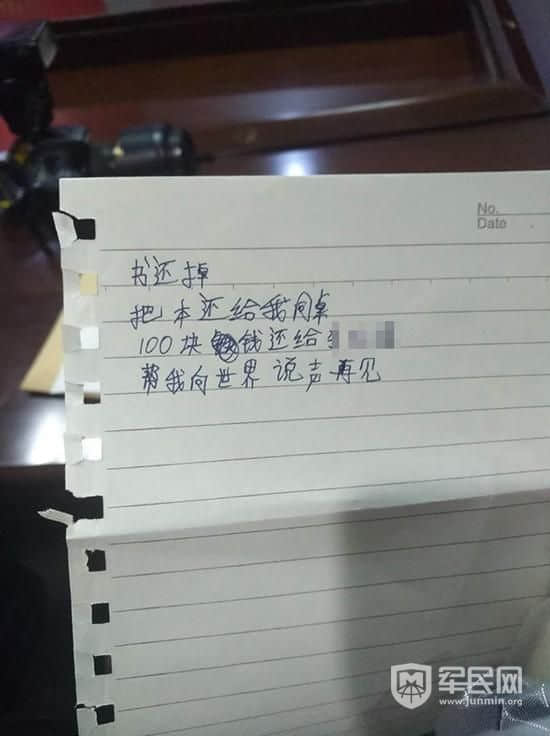 No.
Date
书还掉
把本还给我同桌
100块钱还给
帮我向世界说声再见
军民网
www.junmin.org